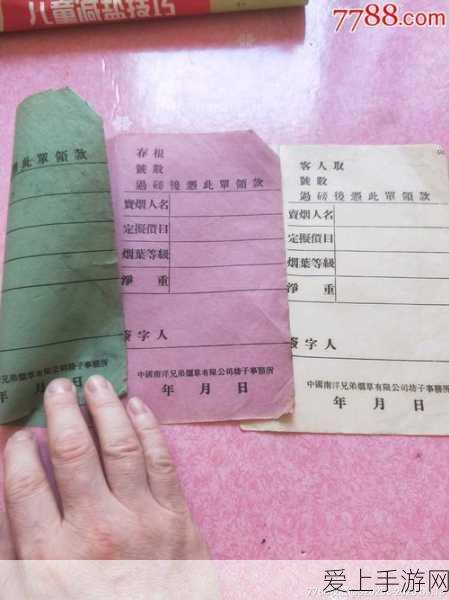 儿童减盐技巧
7788.com
此單領款
洋兄弟烟草有限公司坊子事務所
年 月 日
存根
號數
過磅後憑此單領款
賣烟人名
定擬價目
烟葉等級
淨 重
簽字人
中國南洋兄弟烟草有限公司坊子事務所
年 月 日
客人取
號數
過磅後憑此單領款
賣烟人名
定擬價目
烟葉等級
淨 重
簽字人
中國南洋兄弟烟草有限公司坊子事務所
年 月 日
爱上手游网